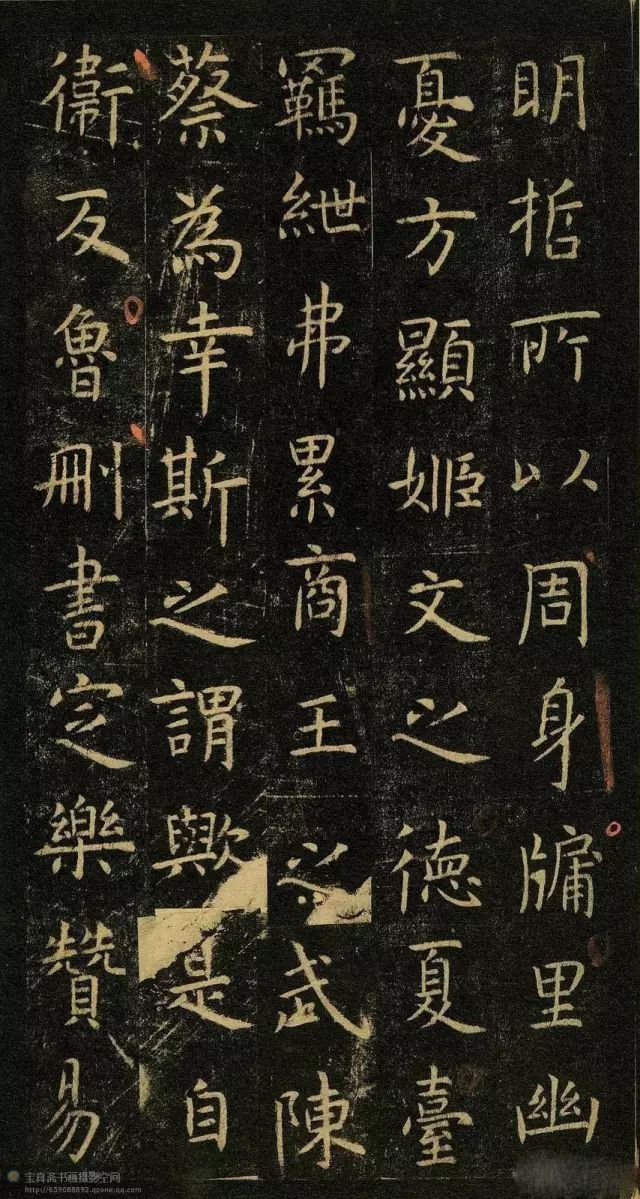 明哲所以周身牖里幽
憂方顯姬文之德夏臺
羈紲弗累商王之武陳
蔡為幸斯之謂歟是自
衛反魯刪書定樂贊易
宝真斋书画摄影空间
http://659088892.qzone.qq.com